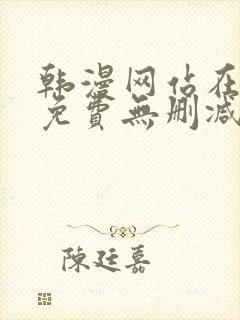 韩漫网站在
免費無刪减
陳廷嘉